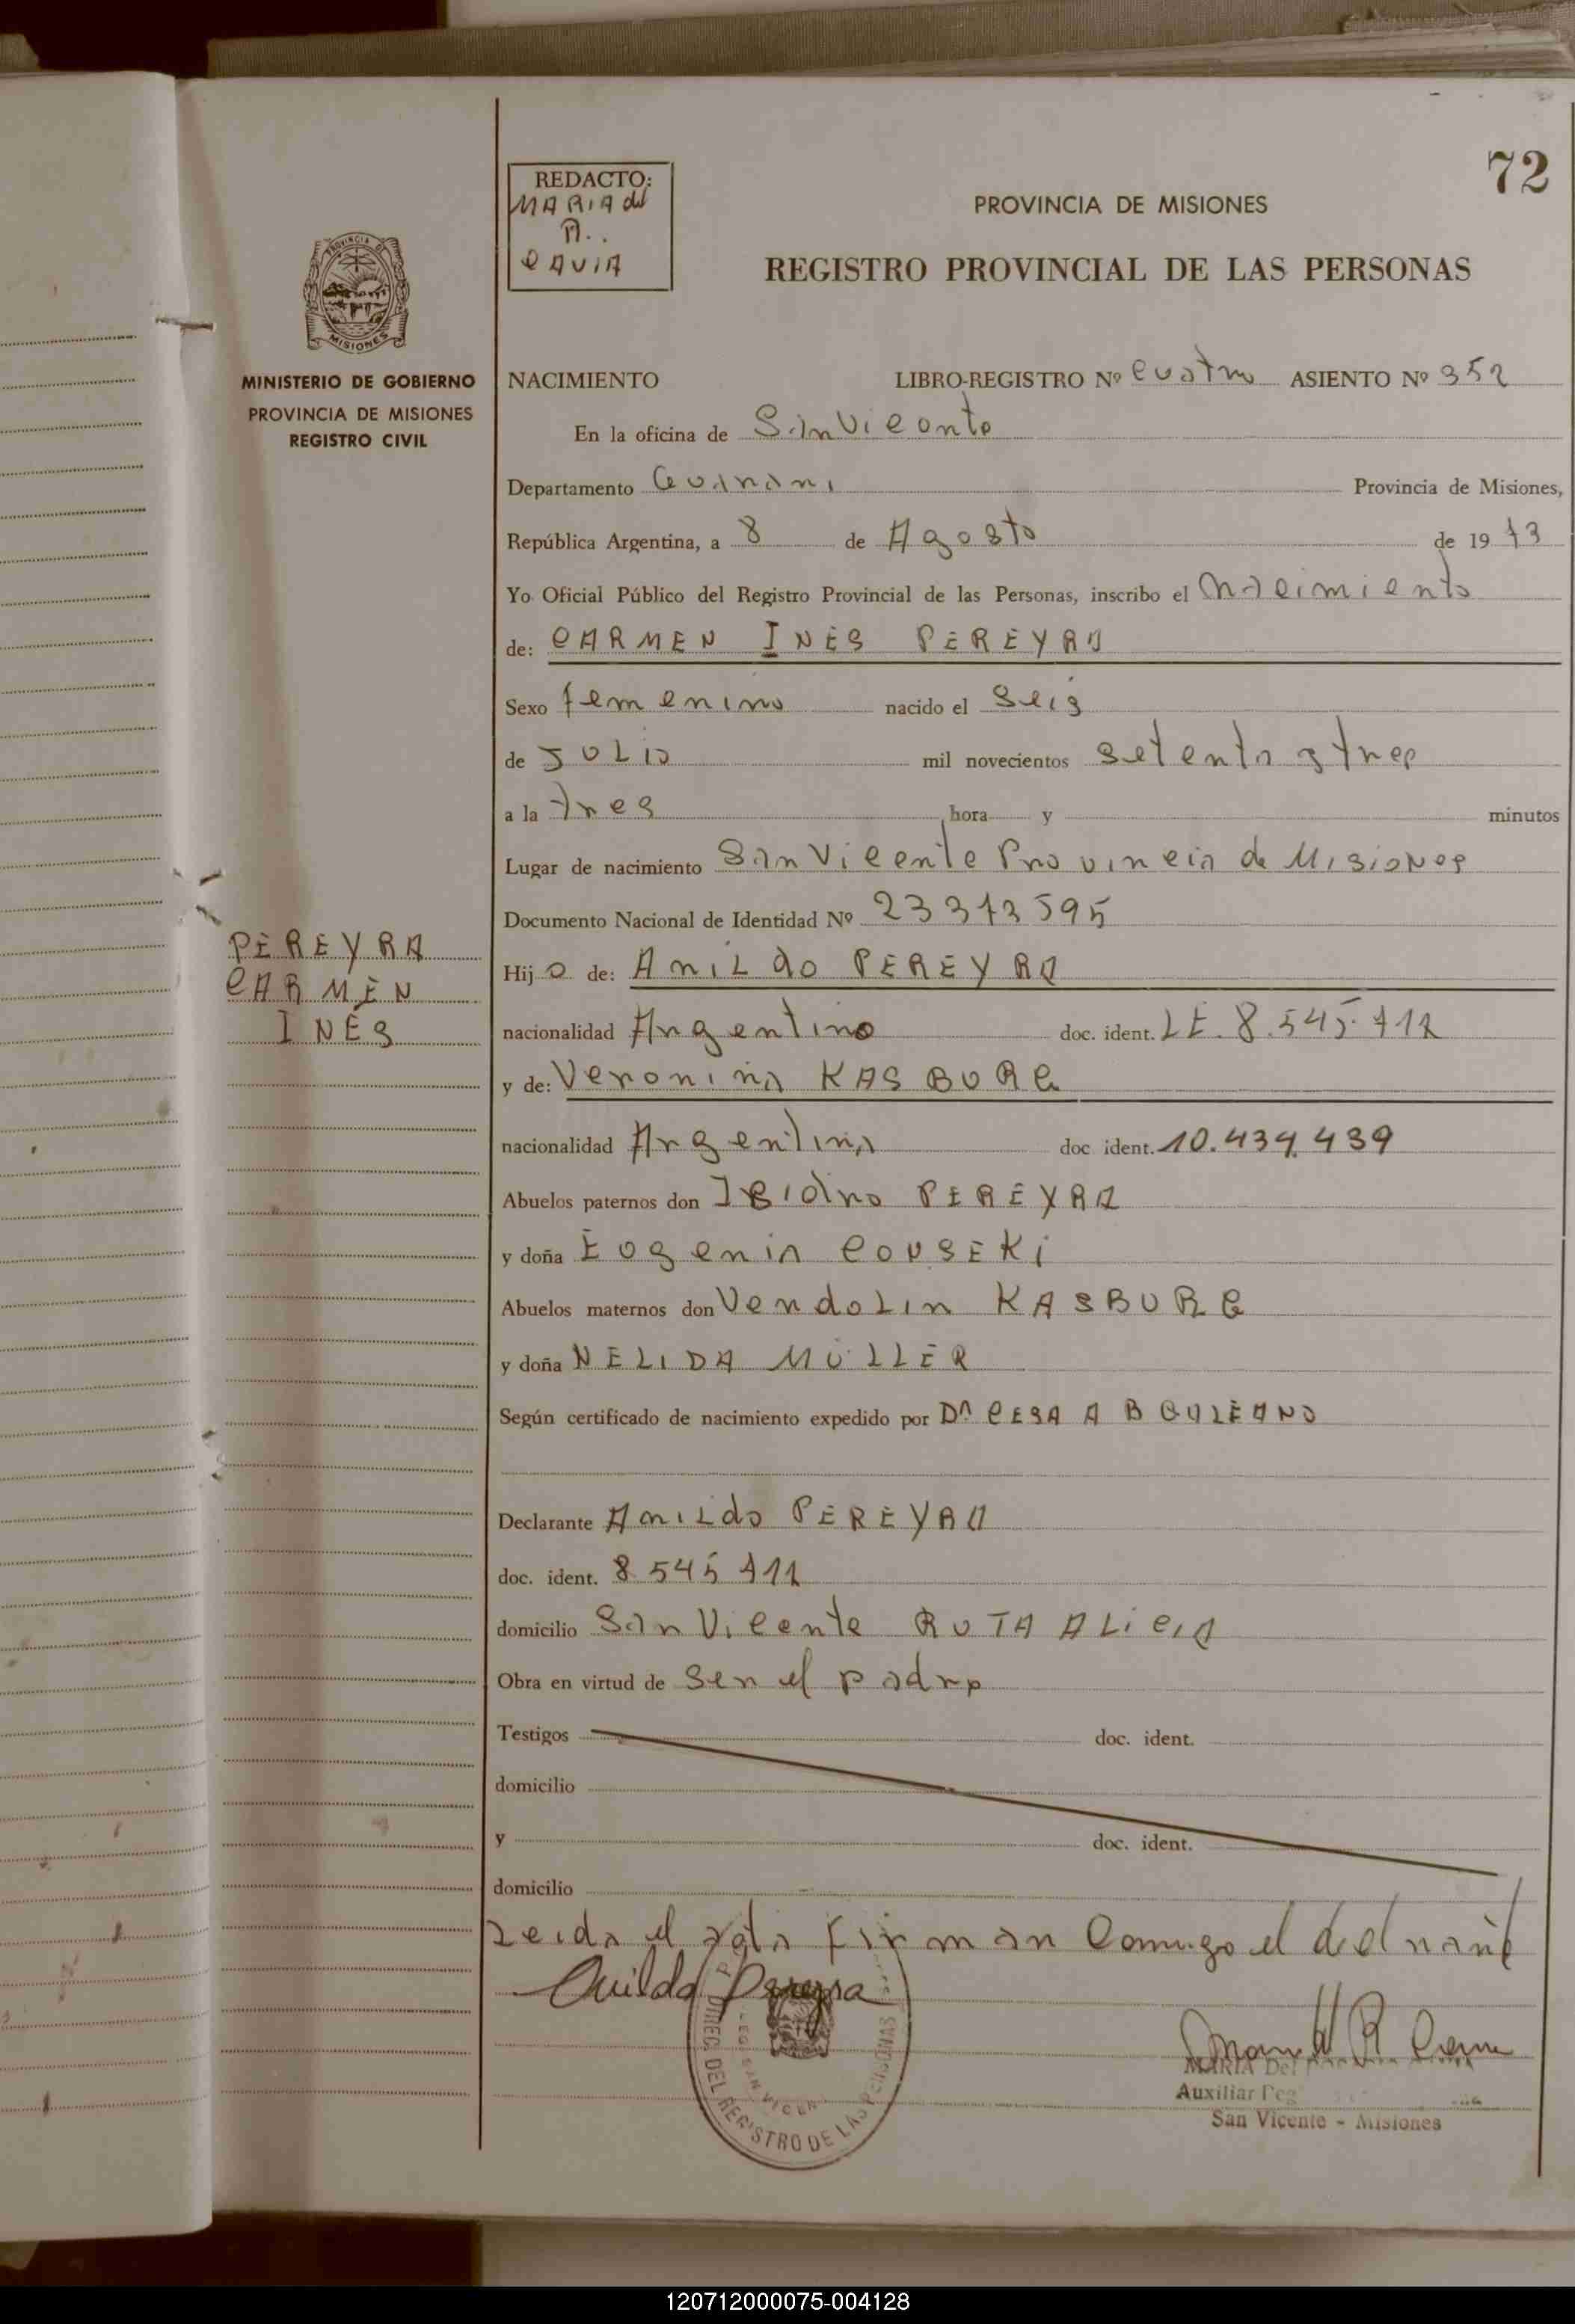 72
REDACTO:
MARIA del
R..
CAVIA
PROVINCIA DE MISIONES
REGISTRO PROVINCIAL DE LAS PERSONAS
PROVINCIA DE
MISIONES
MINISTERIO DE GOBIERNO
PROVINCIA DE MISIONES
REGISTRO CIVIL
NACIMIENTO LIBRO-REGISTRO Nº cuatro ASIENTO Nº 352
En la oficina de San Vicente
Departamento Guarani Provincia de Misiones,
República Argentina, a 8 de Agosto de 1973
Yo Oficial Público del Registro Provincial de las Personas, inscribo el Nacimiento
de: CARMEN INÉS PEREYRA
Sexo femenino nacido el seis
de JULIO mil novecientos setenta y tres
a la tres hora y minutos
Lugar de nacimiento San Vicente Provincia de Misiones
Documento Nacional de Identidad Nº 23373595
Hijo de: Anildo PEREYRA
nacionalidad Argentino doc. ident. LE. 8.545.711
y de: Veronica KASBURG
nacionalidad Argentina doc ident. 10.434.439
Abuelos paternos don Isidro PEREYRA
y doña Eugenia COUSEKi
Abuelos maternos don Vendolin KASBURG
y doña NELIDA MULLER
Según certificado de nacimiento expedido por Dr CESA A B GULEANO
PEREYRA
CARMEN
INÉS
Declarante Anildo PEREYRA
doc. ident. 8 545 711
domicilio San Vicente RUTA ALiCIA
Obra en virtud de ser el padre
Testigos doc. ident.
domicilio
y doc. ident.
domicilio
Leida el acta firman Comigo el declarante
Anildo Pereyra
DIREC. DEL REGISTRO DE LAS PERSONAS
SAN VICEN
MARIA Del
Auxiliar Reg
San Vicente - Misiones
120712000075-004128